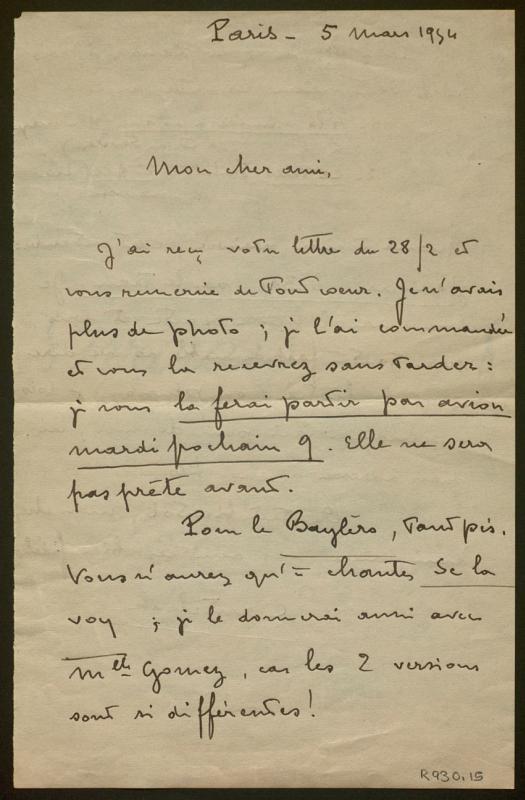 Paris - 5 mars 1954
Mon cher ami,
J'ai reçu votre lettre du 28/2 et
vous remercie de tout coeur. Je n'avais
plus de photo ; je l'ai commandée
et vous la recevrez sans tarder :
je vous la ferai partir par avion
mardi pochain 9. Elle ne sera
pas prête avant.
Pour le Baÿlèro, tant pis.
Vous n'aurez qu'= chanter Se la
voy ; je le donnerai aussi avec
Melle Gomez, car les 2 versions
sont si différentes !
R930.15